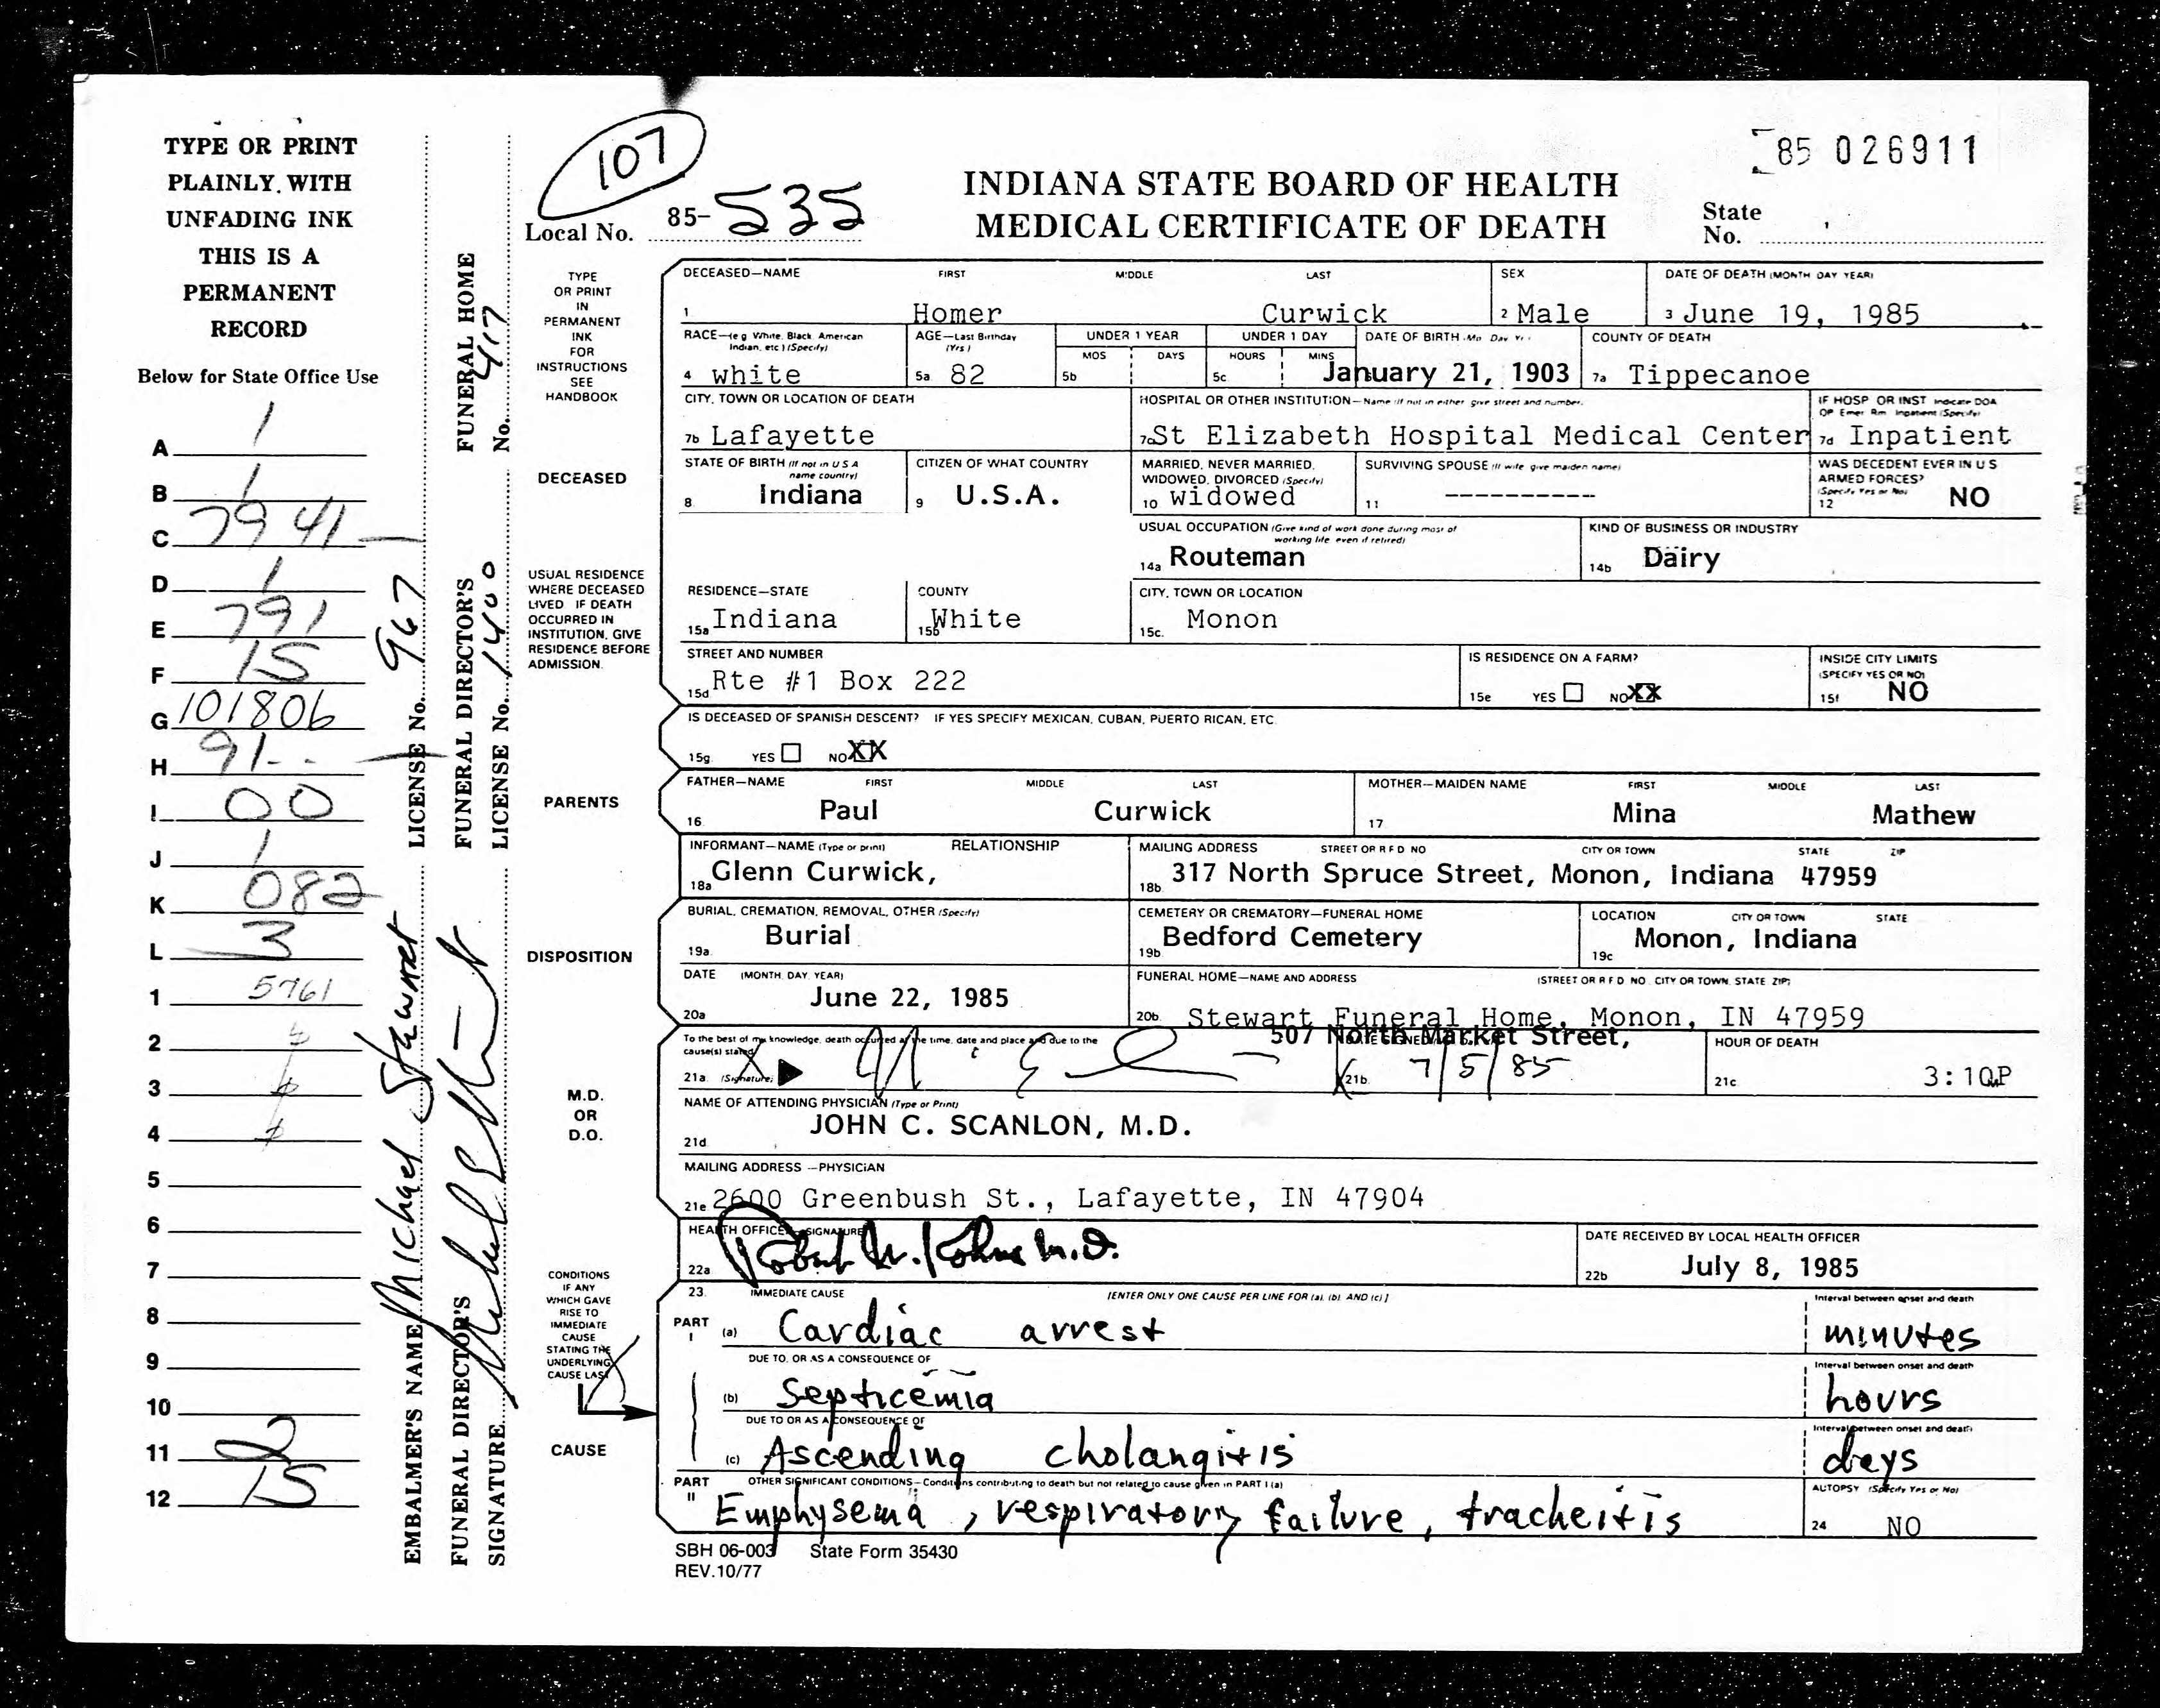 85 026911
107
Local No. 85-535
INDIANA STATE BOARD OF HEALTH
MEDICAL CERTIFICATE OF DEATH
State
No.
TYPE OR PRINT
PLAINLY, WITH
UNFADING INK
THIS IS A
PERMANENT
RECORD
Below for State Office Use
A 1
B 1
C 7941
D 1
E 791
F 15
G 101806
H 91--
I 00
J 1
K 082
L 3
1 5761
2
3
4
5
6
7
8
9
10
11 2
12 15
EMBALMER'S NAME Michael Stewart LICENSE No. 967
FUNERAL DIRECTOR'S
SIGNATURE
FUNERAL DIRECTOR'S
LICENSE No. 1400
FUNERAL HOME
No. 417
TYPE
OR PRINT
IN
PERMANENT
INK
FOR
INSTRUCTIONS
SEE
HANDBOOK
DECEASED
USUAL RESIDENCE
WHERE DECEASED
LIVED IF DEATH
OCCURRED IN
INSTITUTION, GIVE
RESIDENCE BEFORE
ADMISSION.
PARENTS
DISPOSITION
M.D.
OR
D.O.
CONDITIONS
IF ANY
WHICH GAVE
RISE TO
IMMEDIATE
CAUSE
STATING THE
UNDERLYING
CAUSE LAST
CAUSE
DECEASED—NAME FIRST MIDDLE LAST SEX DATE OF DEATH (MONTH DAY YEAR)
1 Homer Curwick 2 Male 3 June 19, 1985
RACE—(e g White, Black, American Indian, etc ) (Specify) AGE—Last Birthday (Yrs ) UNDER 1 YEAR UNDER 1 DAY DATE OF BIRTH (Mo Day Yr) COUNTY OF DEATH
MOS DAYS HOURS MINS
4 white 5a 82 5b 5c January 21, 1903 7a Tippecanoe
CITY, TOWN OR LOCATION OF DEATH HOSPITAL OR OTHER INSTITUTION—Name (If not in either give street and number) IF HOSP OR INST Indicate DOA OP Emer Rm Inpatient (Specify)
7b Lafayette 7c St Elizabeth Hospital Medical Center 7d Inpatient
STATE OF BIRTH (If not in U S A name country) CITIZEN OF WHAT COUNTRY MARRIED, NEVER MARRIED, WIDOWED, DIVORCED (Specify) SURVIVING SPOUSE (If wife give maiden name) WAS DECEDENT EVER IN U S ARMED FORCES? (Specify Yes or No)
8 Indiana 9 U.S.A. 10 widowed 11 ----------- 12 NO
USUAL OCCUPATION (Give kind of work done during most of working life even if retired) KIND OF BUSINESS OR INDUSTRY
14a Routeman 14b Dairy
RESIDENCE—STATE COUNTY CITY, TOWN OR LOCATION
15a Indiana 15b White 15c. Monon
STREET AND NUMBER IS RESIDENCE ON A FARM? INSIDE CITY LIMITS (SPECIFY YES OR NO)
15d Rte #1 Box 222 15e YES NO XX 15f NO
IS DECEASED OF SPANISH DESCENT? IF YES SPECIFY MEXICAN, CUBAN, PUERTO RICAN, ETC.
15g. YES NO XX
FATHER—NAME FIRST MIDDLE LAST MOTHER—MAIDEN NAME FIRST MIDDLE LAST
16. Paul Curwick 17. Mina Mathew
INFORMANT—NAME (Type or print) RELATIONSHIP MAILING ADDRESS STREET OR R F D NO CITY OR TOWN STATE ZIP
18a Glenn Curwick, 18b. 317 North Spruce Street, Monon, Indiana 47959
BURIAL, CREMATION, REMOVAL, OTHER (Specify) CEMETERY OR CREMATORY—FUNERAL HOME LOCATION CITY OR TOWN STATE
19a. Burial 19b. Bedford Cemetery 19c Monon, Indiana
DATE (MONTH, DAY, YEAR) FUNERAL HOME—NAME AND ADDRESS (STREET OR R F D NO. CITY OR TOWN, STATE ZIP)
20a June 22, 1985 20b. Stewart Funeral Home, Monon, IN 47959
507 North Market Street,
To the best of my knowledge, death occurred at the time, date and place and due to the cause(s) stated DATE SIGNED HOUR OF DEATH
21a. (Signature) X 21b. 7/5/85 21c 3:10 P
NAME OF ATTENDING PHYSICIAN (Type or Print)
21d JOHN C. SCANLON, M.D.
MAILING ADDRESS—PHYSICIAN
21e 2600 Greenbush St., Lafayette, IN 47904
HEALTH OFFICER SIGNATURE DATE RECEIVED BY LOCAL HEALTH OFFICER
22a M.D. 22b July 8, 1985
23. IMMEDIATE CAUSE [ENTER ONLY ONE CAUSE PER LINE FOR (a), (b), AND (c)] Interval between onset and death
PART I (a) Cardiac arrest minutes
DUE TO, OR AS A CONSEQUENCE OF Interval between onset and death
(b) Septicemia hours
DUE TO OR AS A CONSEQUENCE OF Interval between onset and death
(c) Ascending cholangitis days
PART II OTHER SIGNIFICANT CONDITIONS—Conditions contributing to death but not related to cause given in PART I (a) AUTOPSY (Specify Yes or No)
Emphysema, respiratory failure, tracheitis 24 NO
SBH 06-003 State Form 35430
REV.10/77